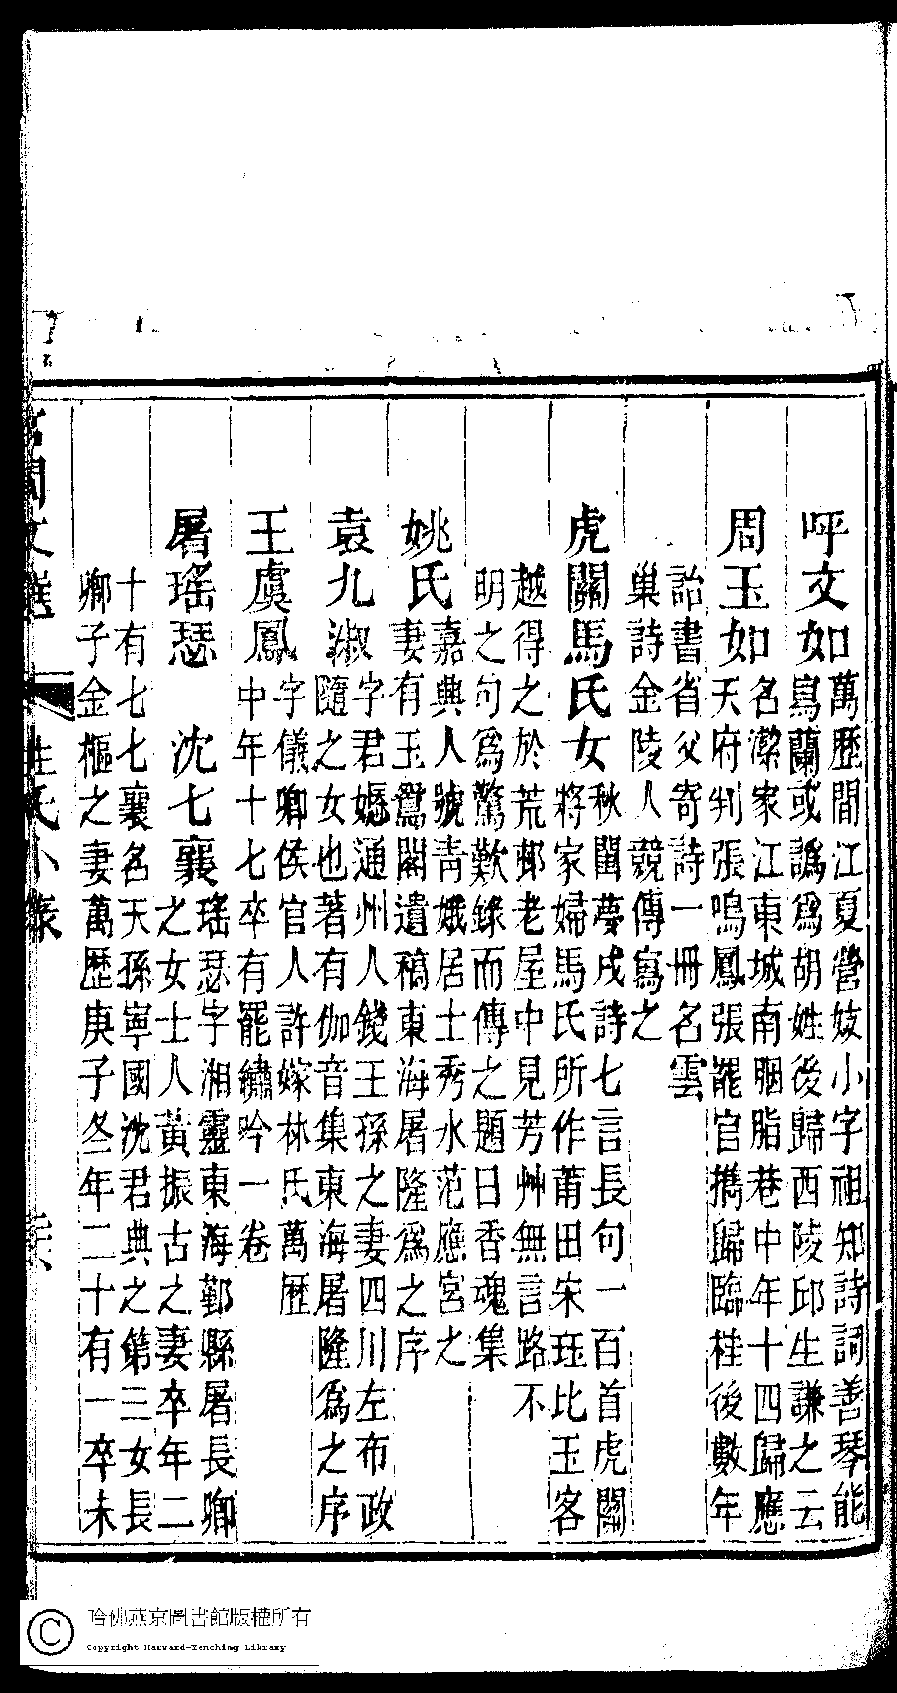 呼文如萬歷間江夏營妓小字祖知詩詞善琴能
寫蘭或譌爲胡姓後歸西陵邱生謙之云
周玉如名潔家江東城南胭脂巷中年十四歸應
天府判張鳴鳳張罷官擕歸臨桂後數年
詒書省父寄詩一冊名雲
巢詩金陵人競傳寫之
虎關馬氏女秋閨夢戍詩七言長句一百首虎關
將家婦馬氏所作莆田宋珏比玉客
越得之於荒邨老屋中見芳艸無言路不
明之句爲驚歎錄而傳之題曰香魂集
姚氏嘉興人號青娥居士秀水范應宮之
妻有玉鴛閣遺稿東海屠隆爲之序
袁九淑字君嫕通州人錢王孫之妻四川左布政
隨之女也著有伽音集東海屠隆爲之序
王虞鳳字儀卿侯官人許嫁林氏萬歷
中年十七卒有罷繡吟一卷
屠瑤瑟 沈七襄瑤瑟字湘靈東海鄞縣屠長卿
之女士人黃振古之妻卒年二
十有七七襄名天孫寧國沈君典之第三女長
卿子金樞之妻萬歷庚子冬年二十有一卒未
宮閨文選
姓氏小錄
哈佛燕京圖書館版權所有
Copyright Harvard-Yenching Library